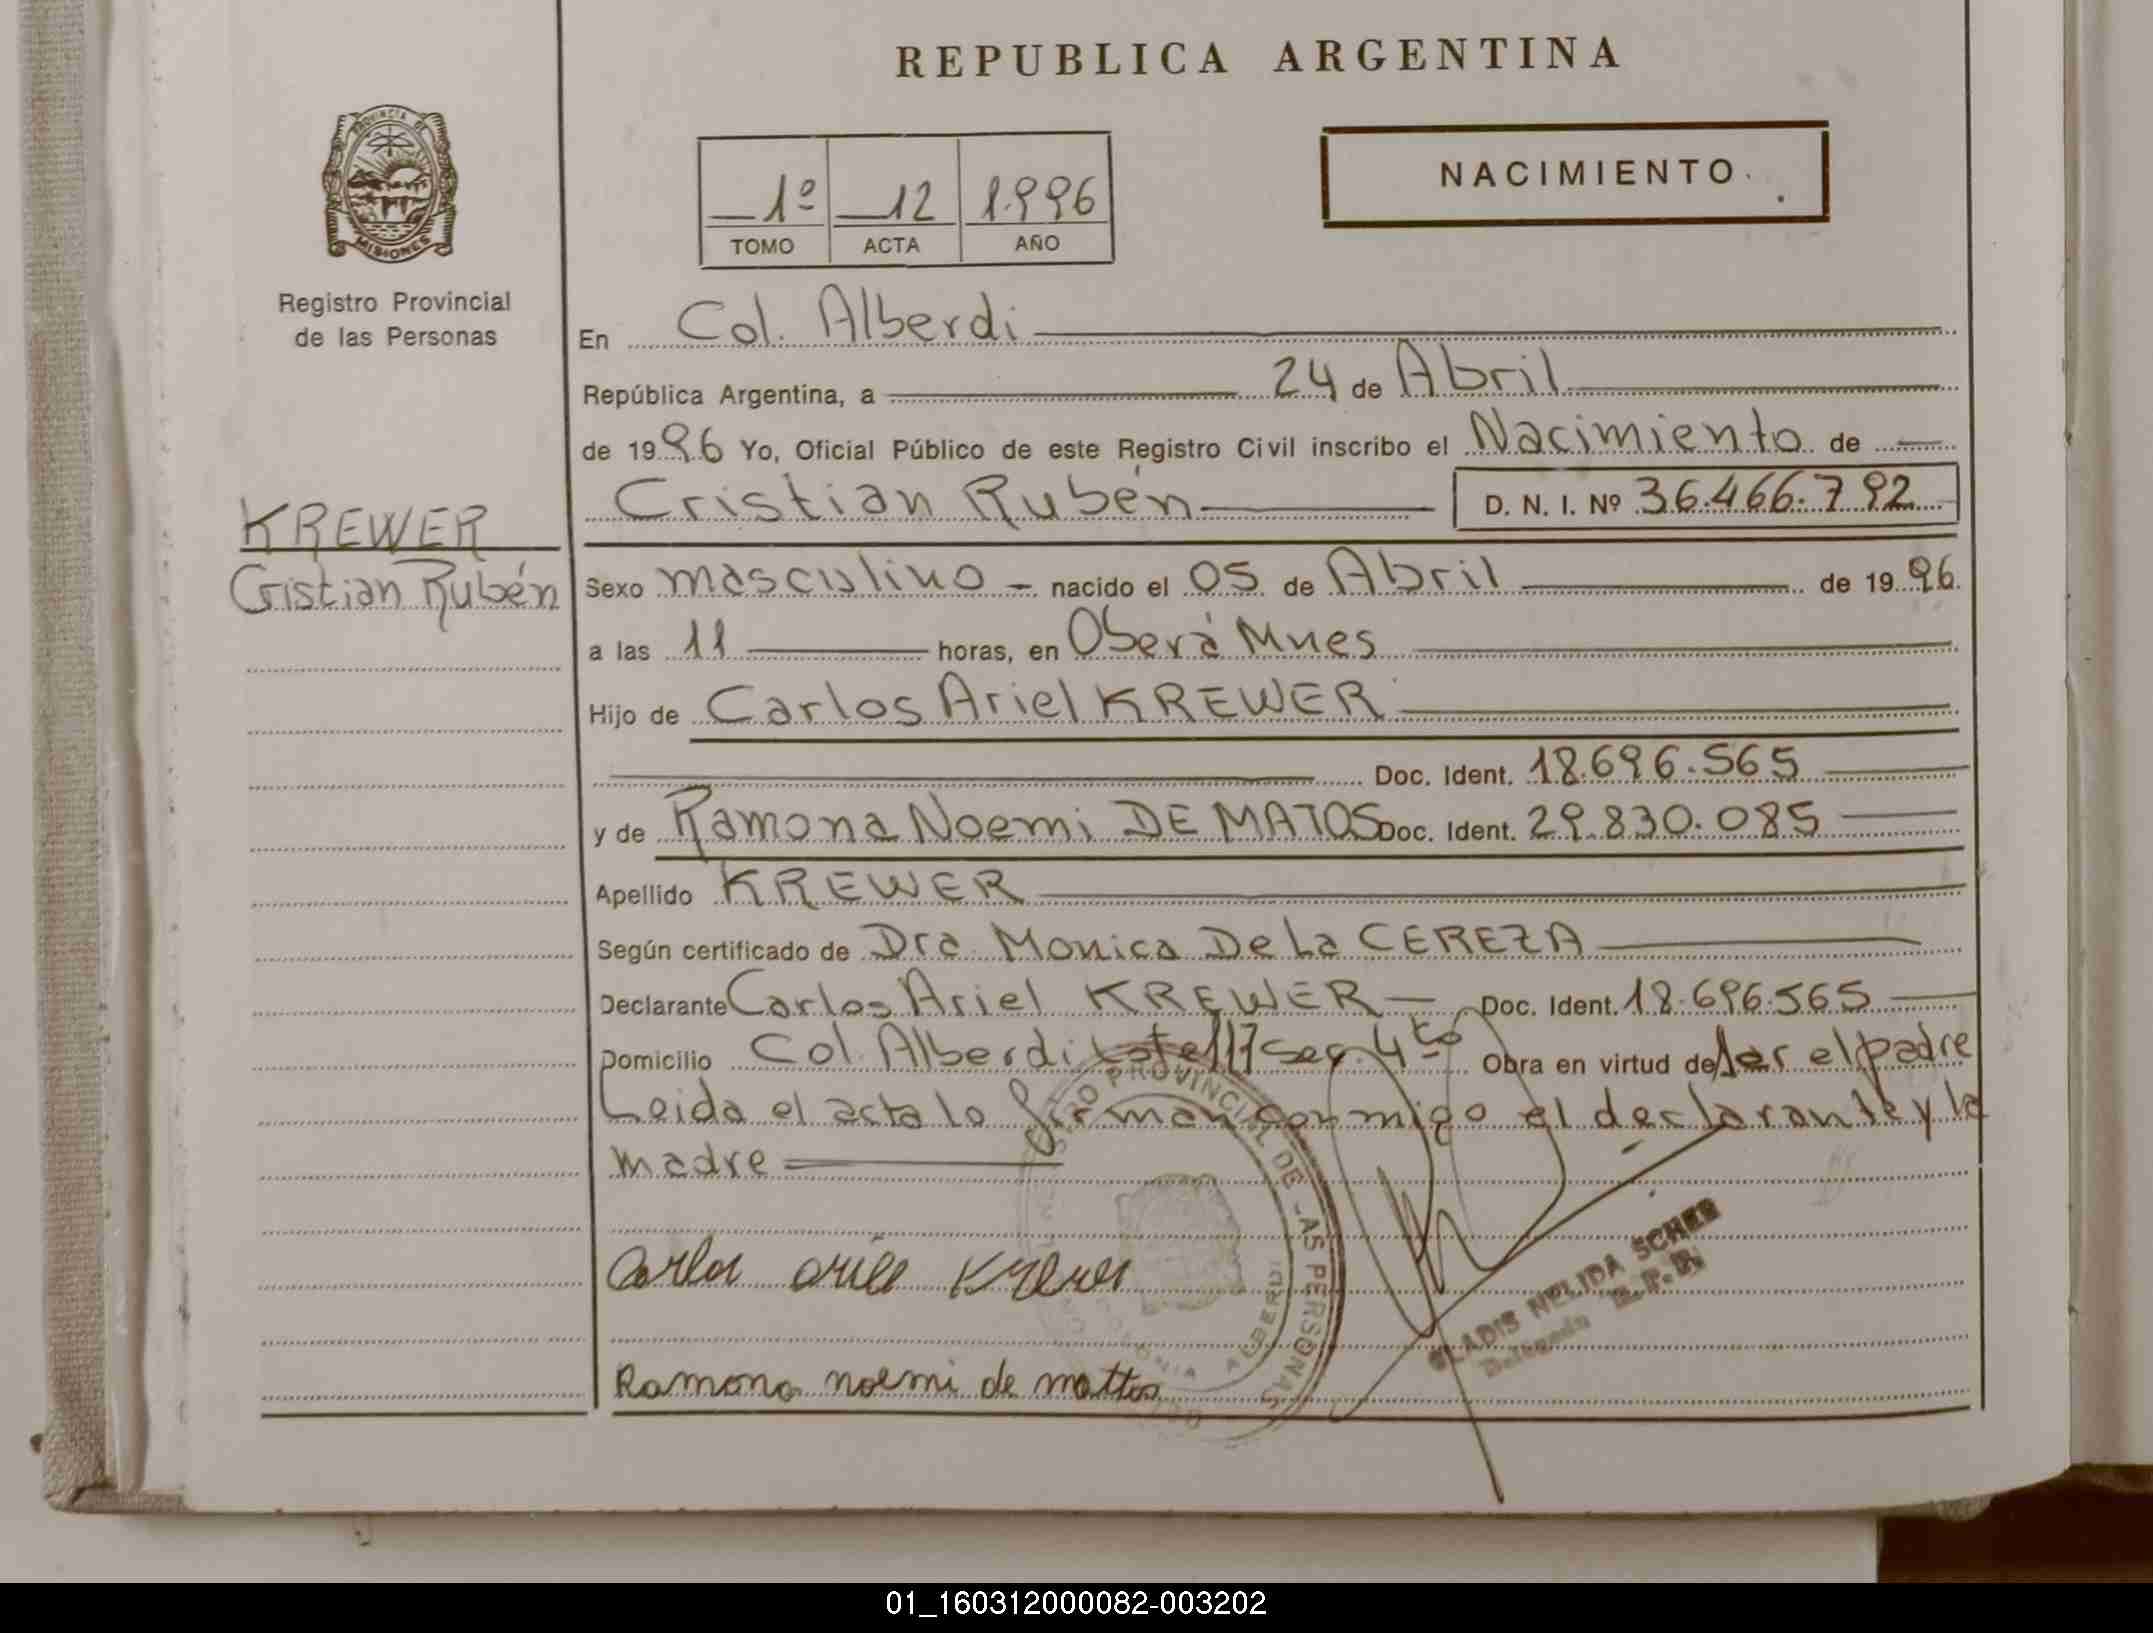 REPUBLICA ARGENTINA
PROVINCIA DE
MISIONES
Registro Provincial
de las Personas
1º 12 1.996
TOMO ACTA AÑO
NACIMIENTO
En Col. Alberdi
República Argentina, a 24 de Abril
de 1996 Yo, Oficial Público de este Registro Civil inscribo el Nacimiento de
Cristian Rubén D. N. I. Nº 36.466.792
KREWER
Cristian Rubén
Sexo masculino - nacido el 05 de Abril de 1996
a las 11 horas, en Oberá Mnes
Hijo de Carlos Ariel KREWER
Doc. Ident. 18.696.565
y de Ramona Noemi DE MATOS Doc. Ident. 29.830.085
Apellido KREWER
Según certificado de Dra Monica De La CEREZA
Declarante Carlos Ariel KREWER - Doc. Ident. 18.696.565
Domicilio Col. Alberdi Lote 117 sec. 4ta Obra en virtud de ser el padre
Leida el acta lo firman conmigo el declarante y la
madre
PROVINCIAL DE LAS PERSONAS
COLONIA ALBERDI
Carlos Ariel Krewer
GLADIS NELIDA SCHER
Delegada R.P.P.
Ramona noemi de mattos
01_160312000082-003202